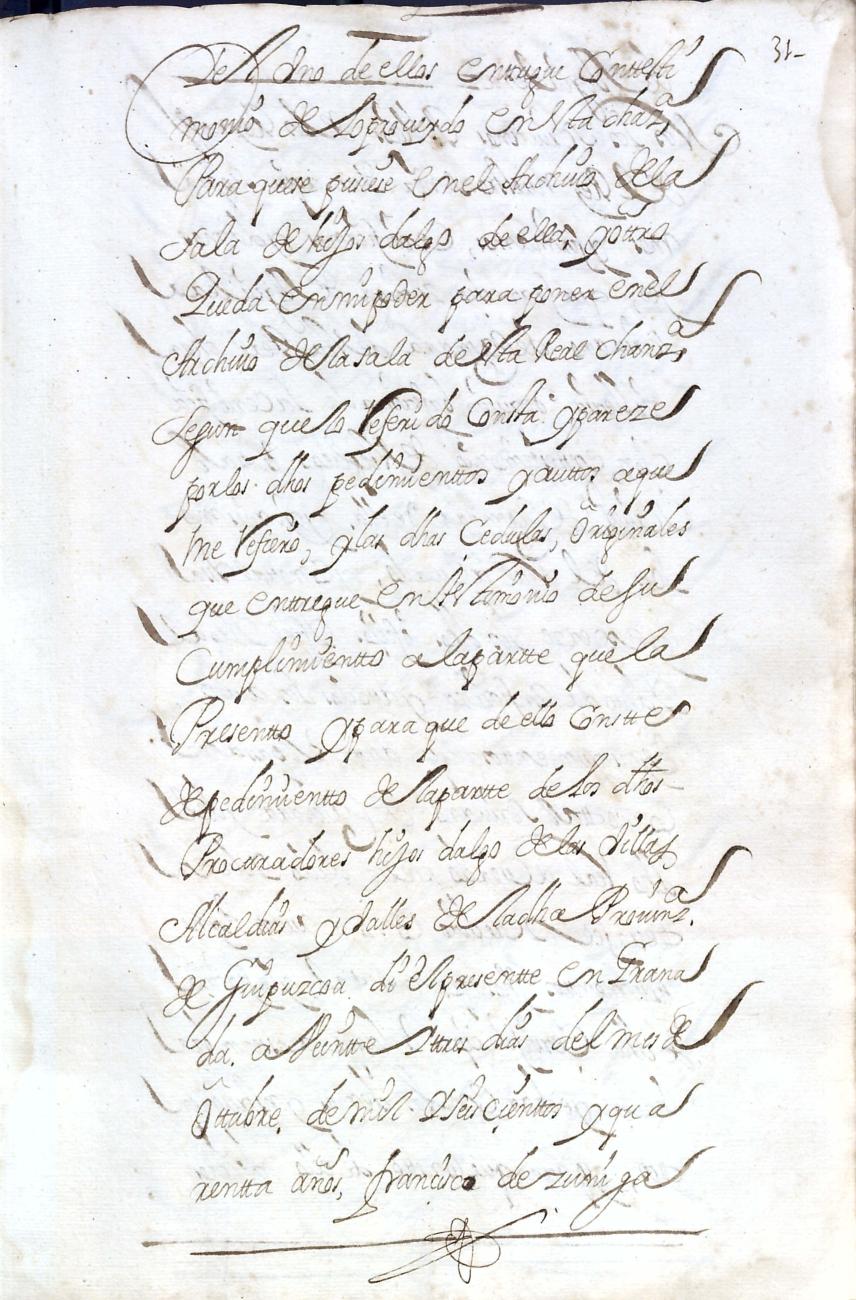 31-
del Uno de ellos entregue Contesti
monio de loproueydo en esta chanz.a
Para quese pusiese enel Archiuo dela
Sala de hijos dalgo de ella, yottro
Queda enmipoder para poner enel
Archiuo delasala de esta Real Chanz.a
Segun que lo Referido Consta ypareze
porlos dhos pedimienttos yauttos aque
me Refiero, ylas dhas Cedulas, Originales
que enttregue en testimonio de su
Cumplimientto alapartte que la
Presentto yparaque deello Constte
de pedimientto delapartte de los dhos
Procuradores hijos dalgo delas Villas
Alcaldias y Valles deladha Prouinz.a
de Guipuzcoa di el presentte en Grana
da. a Veintte yttres dias del mes de
Ottubre. de mil y seiscienttos yqua
rentta años, francisco de zuniga